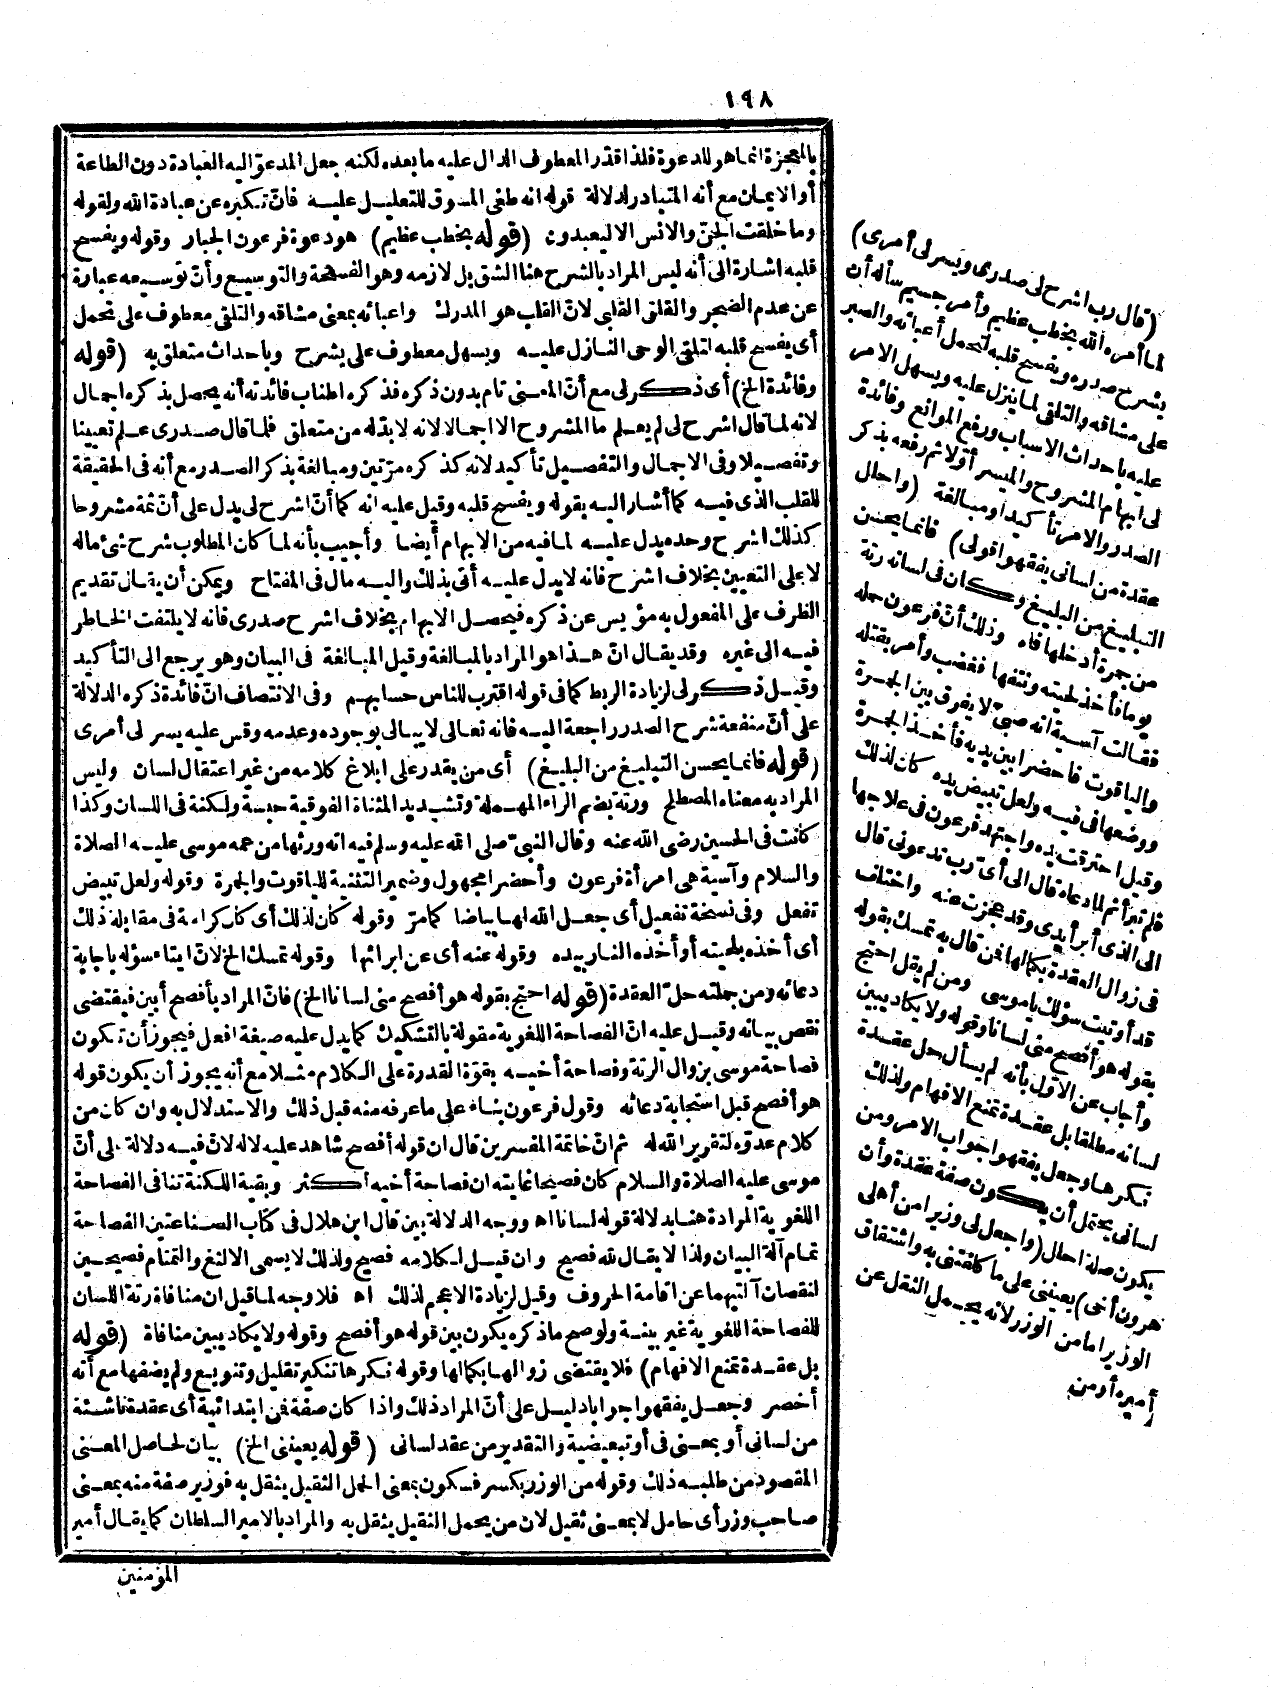 ١٩٨
بالمعجزة انما هو للدعوة فلذا قدر المعطوف الدال عليه ما بعده لكنه جعل المدعوّ اليه العبادة دون الطاعة
أو الايمان مع أنه المتبادر لدلالة قوله انه طغى المسوق للتعليل عليه فانّ تكبره عن عبادة الله ولقوله
وما خلقت الجنّ والانس الا ليعبدون (قوله بخطب عظيم) هو دعوة فرعون الجبار وقوله ويفسح
قلبه اشارة الى أنه ليس المراد بالشرح هنا الشق بل لازمه وهو الفسحة والتوسيع وأنّ توسيعه عبارة
عن عدم الضجر والقلق القلبى لانّ القلب هو المدرك واعبائه بمعنى مشاقه والتلقى معطوف على تحمل
أى يفسح قلبه لتلقى الوحى النازل عليه ويسهل معطوف على يشرح وباحداث متعلق به (قوله
وفائدة الخ) أى ذكر لى مع أنّ المعنى تام بدون ذكره فذكره اطناب فائدته أنه يحصل بذكره اجمال
لانه لما قال اشرح لى لم يعلم ما المشروح الا اجمالا لانه لا بدّ له من متعلق فلما قال صدرى علم تعيينا
وتفصيلا وفى الاجمال والتفصيل تأكيد لانه كذكره مرّتين ومبالغة بذكر الصدر مع أنه فى الحقيقة
للقلب الذى فيه كما أشار اليه بقوله ويفسح قلبه وقيل عليه انه كما أنّ اشرح لى يدل على أنّ ثمة مشروحا
كذلك اشرح وحده يدل عليه لما فيه من الابهام أيضا وأجيب بأنه لما كان المطلوب شرح شئ ماله
لا على التعيين بخلاف اشرح فانه لا يدل عليه أتى بذلك واليه مال فى المفتاح ويمكن أن يقال تقديم
الظرف على المفعول به مؤيس عن ذكره فيحصل الابهام بخلاف اشرح صدرى فانه لا يلتفت الخاطر
فيه الى غيره وقد يقال انّ هذا هو المراد بالمبالغة وقيل المبالغة فى البيان وهو يرجع الى التأكيد
وقيل ذكر لى لزيادة الربط كما فى قوله اقترب للناس حسابهم وفى الانتصاف انّ فائدة ذكره الدلالة
على أنّ منفعة شرح الصدر راجعة اليه فانه تعالى لا يبالى بوجوده وعدمه وقس عليه يسر لى أمرى
(قوله فانما يحسن التبليغ من البليغ) أى من يقدر على ابلاغ كلامه من غير اعتقال لسان وليس
المراد به معناه المصطلح ورتة بضم الراء المهملة وتشديد المثناة الفوقية حبسة ولكنة فى اللسان وكذا
كانت فى الحسين رضى الله عنه وقال النبىّ صلى الله عليه وسلم فيه انه ورثها من عمه موسى عليه الصلاة
والسلام وآسية هى امرأة فرعون وأحضرا مجهول وضمير التثنية للياقوت والجمرة وقوله ولعل تبيض
تفعل وفى نسخة تفعيل أى جعل الله لها بياضا كما مرّ وقوله كان لذلك أى كان كراءة فى مقابلة ذلك
أى أخذه بلحيته أو أخذه النار بيده وقوله عنه أى عن ابرائها وقوله تمسك الخ لانّ ايتاء سؤله باجابة
دعائه ومن جملته حلّ العقدة (قوله احتج بقوله هو أفصح منى لسانا الخ) فانّ المراد بأفصح أبين فيقتضى
نقص بيانه وقيل عليه انّ الفصاحة اللغوية مقولة بالتشكيك كما يدل عليه صيغة افعل فيجوز أن تكون
فصاحة موسى بزوال الرتة وفصاحة أخيه بقوّة القدرة على الكلام مثلا مع أنه يجوز أن يكون قوله
هو أفصح قبل استجابة دعائه وقول فرعون بناء على ما عرفه منه قبل ذلك والاستدلال به وان كان من
كلام عدوّه لتقرير الله له ثم انّ خاتمة المفسرين قال ان قوله أفصح شاهد عليه لا له لانّ فيه دلالة على أنّ
موسى عليه الصلاة والسلام كان فصيحا غايته ان فصاحة أخيه أكثر وبقية اللكنة تنافى الفصاحة
اللغوية المرادة هنا بدلالة قوله لسانا اه ووجه الدلالة بين قال ابن هلال فى كتاب الصناعتين الفصاحة
تمام آلة البيان ولذا لا يقال لله فصيح وان قيل لكلامه فصيح ولذلك لا يسمى الالثغ والتمتام فصيحين
لنقصان آلتيهما عن اقامة الحروف وقيل لزيادة الاعجم لذلك اه فلا وجه لما قيل ان منافاة رتة اللسان
للفصاحة اللغوية غير بينة ولو صح ما ذكره يكون بين قوله هو أفصح وقوله ولا يكاد يبين منافاة (قوله
بل عقدة تمنع الافهام) فلا يقتضى زوالها بكمالها وقوله نكرها تنكير تقليل وتنويع ولم يضفها مع أنه
أخصر وجعل يفقهوا جوابا دليل على أنّ المراد ذلك واذا كان صفة فمن ابتدائية أى عقدة ناشئة
من لسانى أو بمعنى فى أو تبعيضية والتقدير من عقد لسانى (قوله يعيننى الخ) بيان لحاصل المعنى
المقصود من طلبه ذلك وقوله من الوزر بكسر فسكون بمعنى الحمل الثقيل يثقل به فوزير صفة منه بمعنى
صاحب وزر أى حامل لا بمعنى ثقيل لان من يحمل الثقيل يثقل به والمراد بالامير السلطان كما يقال أمير
المؤمنين
(قال رب اشرح لى صدرى ويسر لى أمرى)
لما أمره الله بخطب عظيم وأمر جسيم سأله أن
يشرح صدره ويفسح قلبه لتحمل أعبائه والصبر
على مشاقه والتلقى لما ينزل عليه ويسهل الامر
عليه باحداث الاسباب ورفع الموانع وفائدة
لى ابهام المشروح والميسر أوّلا ثم رفعه بذكر
الصدر والامر تأكيدا ومبالغة (واحلل
عقدة من لسانى يفقهوا قولى) فانما يحسن
التبليغ من البليغ وكان فى لسانه رتة
من جمرة أدخلها فاه وذلك أنّ فرعون حمله
يوما فأخذ لحيته ونتفها فغضب وأمر بقتله
فقالت آسية انه صبىّ لا يفرق بين الجمرة
والياقوت فأحضرا بين يديه فأخذ الجمرة
ووضعها فى فيه ولعل تبييض يده كان لذلك
وقيل احترقت يده واجتهد فرعون فى علاجها
فلم تبرأ ثم لما دعاه قال الى أى رب تدعونى قال
الى الذى أبرأ يدى وقد عجزت عنه واختلف
فى زوال العقدة بكمالها فمن قال به تمسك بقوله
قد أوتيت سؤلك يا موسى ومن لم يقل احتج
بقوله هو أفصح منى لسانا وقوله ولا يكاد يبين
وأجاب عن الاوّل بأنه لم يسأل حل عقدة
لسانه مطلقا بل عقدة تمنع الافهام ولذلك
نكرها وجعل يفقهوا جواب الامر ومن
لسانى يحتمل أن يكون صفة عقدة وأن
يكون صلة احلل (واجعل لى وزيرا من أهلى
هرون أخى) يعيننى على ما كلفتنى به واشتقاق
الوزير اما من الوزر لانه يحمل الثقل عن
أميره أو من